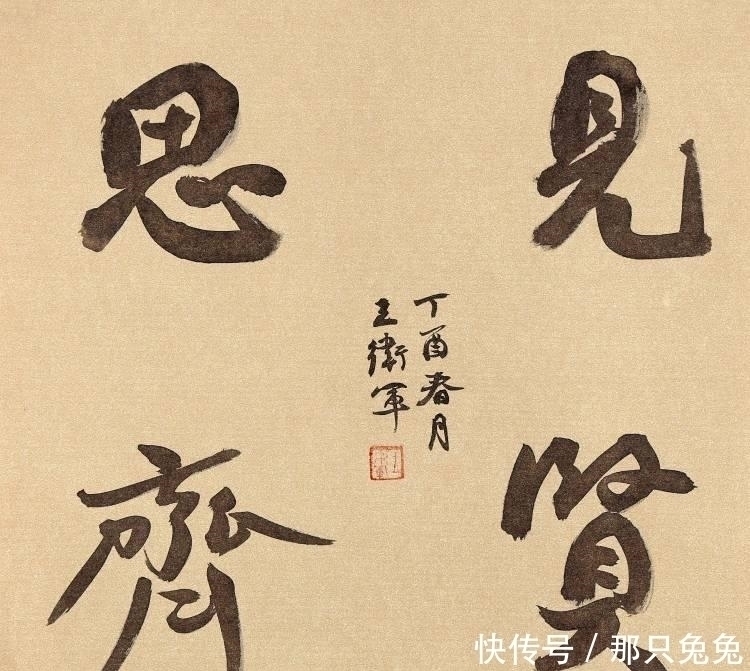 見賢
丁酉春月
王衛軍
思齊
快传号 / 那只兔兔